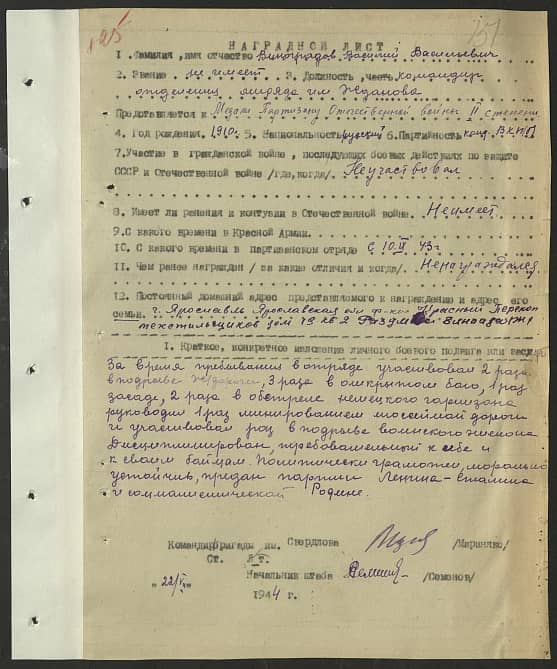 125
151
НАГРАДНОЙ ЛИСТ
1. Фамилия, имя отчество Виноградов Василий Васильевич
2. Звание не имеет 3. Должность, часть командир
отделения отряда им. Жданова
Представляется к Медали Партизану Отечественной войны II степени
4. Год рождения 1910г. 5. Национальность русский 6. Партийность канд. ВКП(б)
7. Участие в гражданской войне, последующих боевых действиях по защите
СССР и Отечественной войне /где, когда/. Не участвовал
8. Имеет ли ранения и контузии в Отечественной войне. Не имеет
9. С какого времени в Красной Армии.
10. С какого времени в партизанском отряде с 10. 43 г
11. Чем ранее награжден /за какие отличия и когда/. Не награждался
12. Постоянный домашний адрес представляемого к награждению и адрес его
семьи. г. Ярославль Ярославская обл ф-ка Красный Перекоп
текстильщиков дом
1. Краткое, конкретное изложение личного боевого подвига или заслуг
За время пребывания в отряде участвовал 2 раза
в подрыве ж/дороги, 3 раза в открытом бою, 1 раз
засаде, 2 раза в обстреле немецкого гарнизона
руководил 1 раз минированием шоссейной дороги
и участвовал раз в подрыве воинского эшелона
Дисциплинирован, требовательный к себе и
к своим бойцам. Политически грамотен, морально
устойчив, предан партии Ленина-Сталина
и социалистической Родине.
Командир бригады им. Свердлова /Мариняко/
Ст.
Начальник штаба /Семонов/
"22/
1944 г.